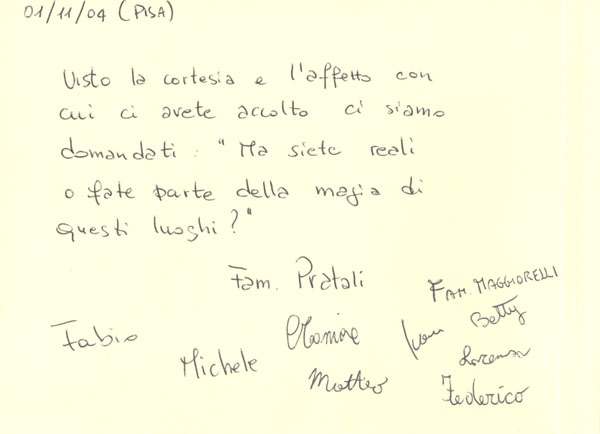 01/11/04 (PISA)
Visto la cortesia e l'affetto con
cui ci avete accolto ci siamo
domandati: "Ma siete reali
o fate parte della magia di
questi luoghi?"
Fam. Pratali
FAM. MAGGIORELLI
Fabio
Betty
Michele
Matteo
Lorenzo
Federico